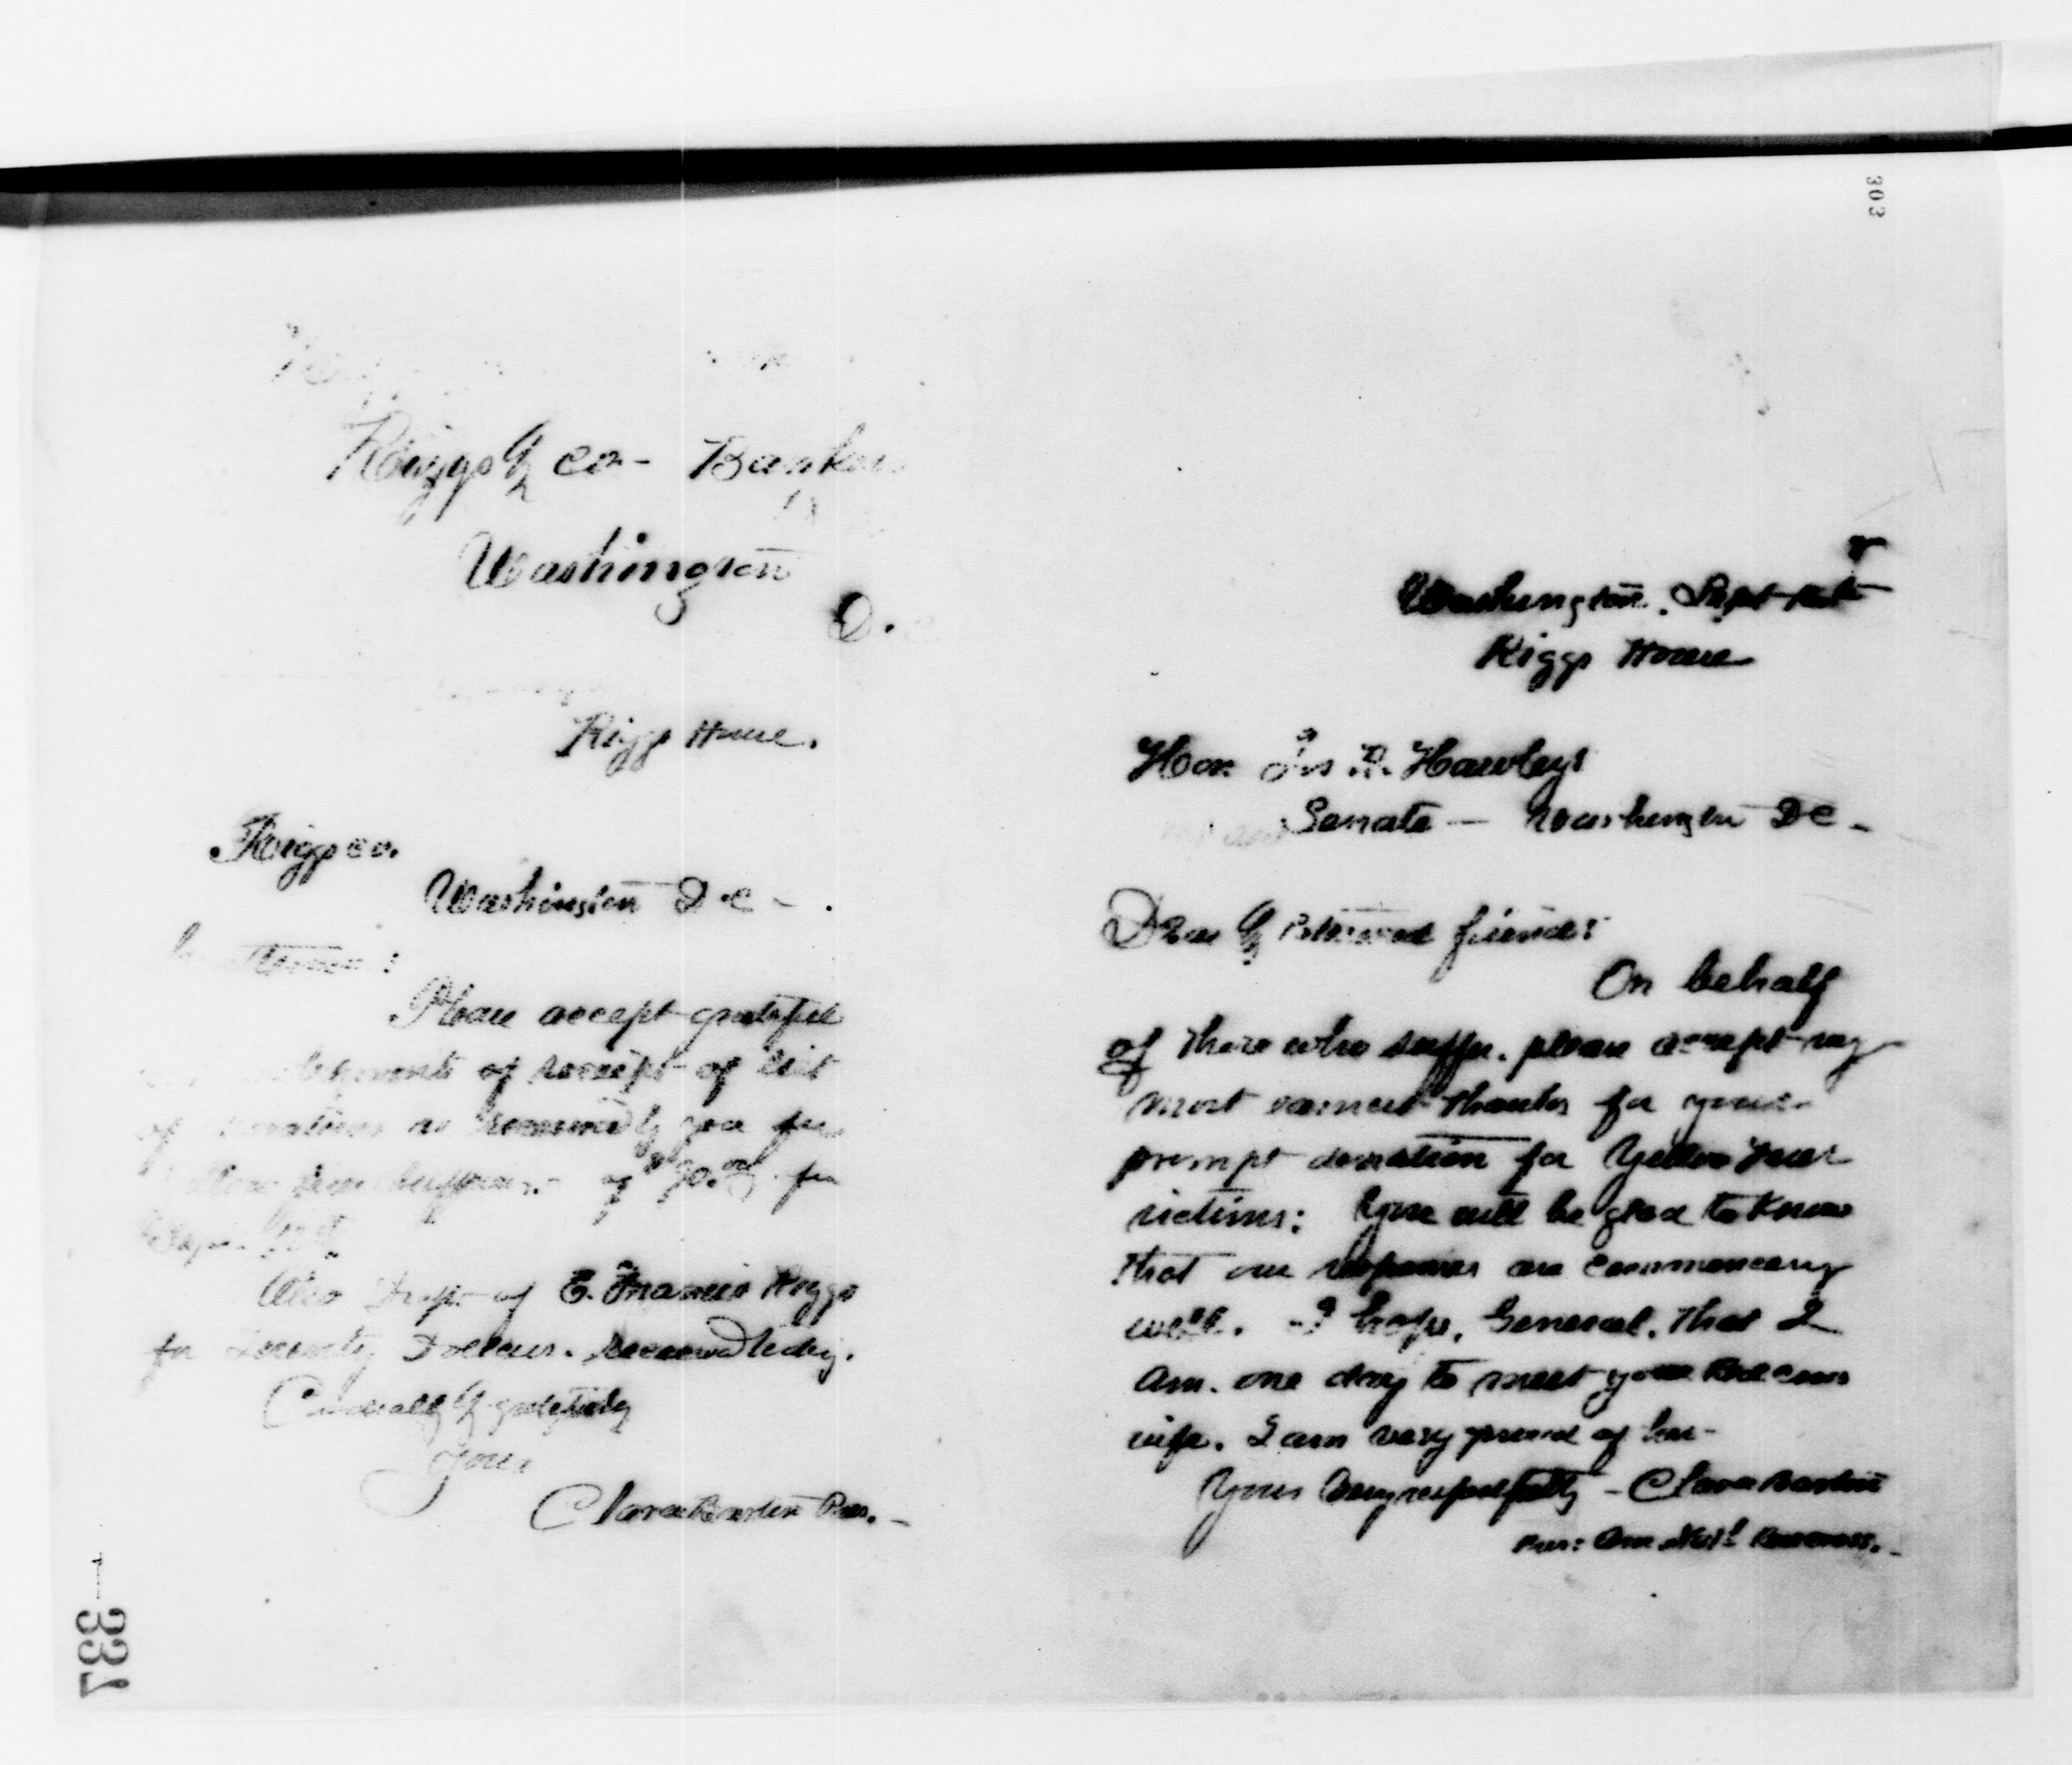 Riggs & Co - Bankers
Washington
D.
Riggs House.
Riggs co.
Washington D.C -
Please accept grateful
of receipt of list
of donations as by you for
of for
Sept.
Also Draft of E. Francis Riggs
for Twenty Dollars. received today.
Cordially & gratefully
yours
Clara Barton Pres. -
337
303
Washington. Sept
Riggs House
Hon Jos R. Hawley
Senate - Washington DC -
Dear & esteemed friend:
On behalf
of those who suffer. please accept my
most earnest thanks for your
prompt donation for Yellow Fever
victims: You will be glad to know
that our responses are commencing
well. I hope, General, that I
am one day to meet your Red Cross
wife. I am very proud of her -
Yours very respectfully - Clara Barton
Pres: Am. Nat'l Red Cross. -